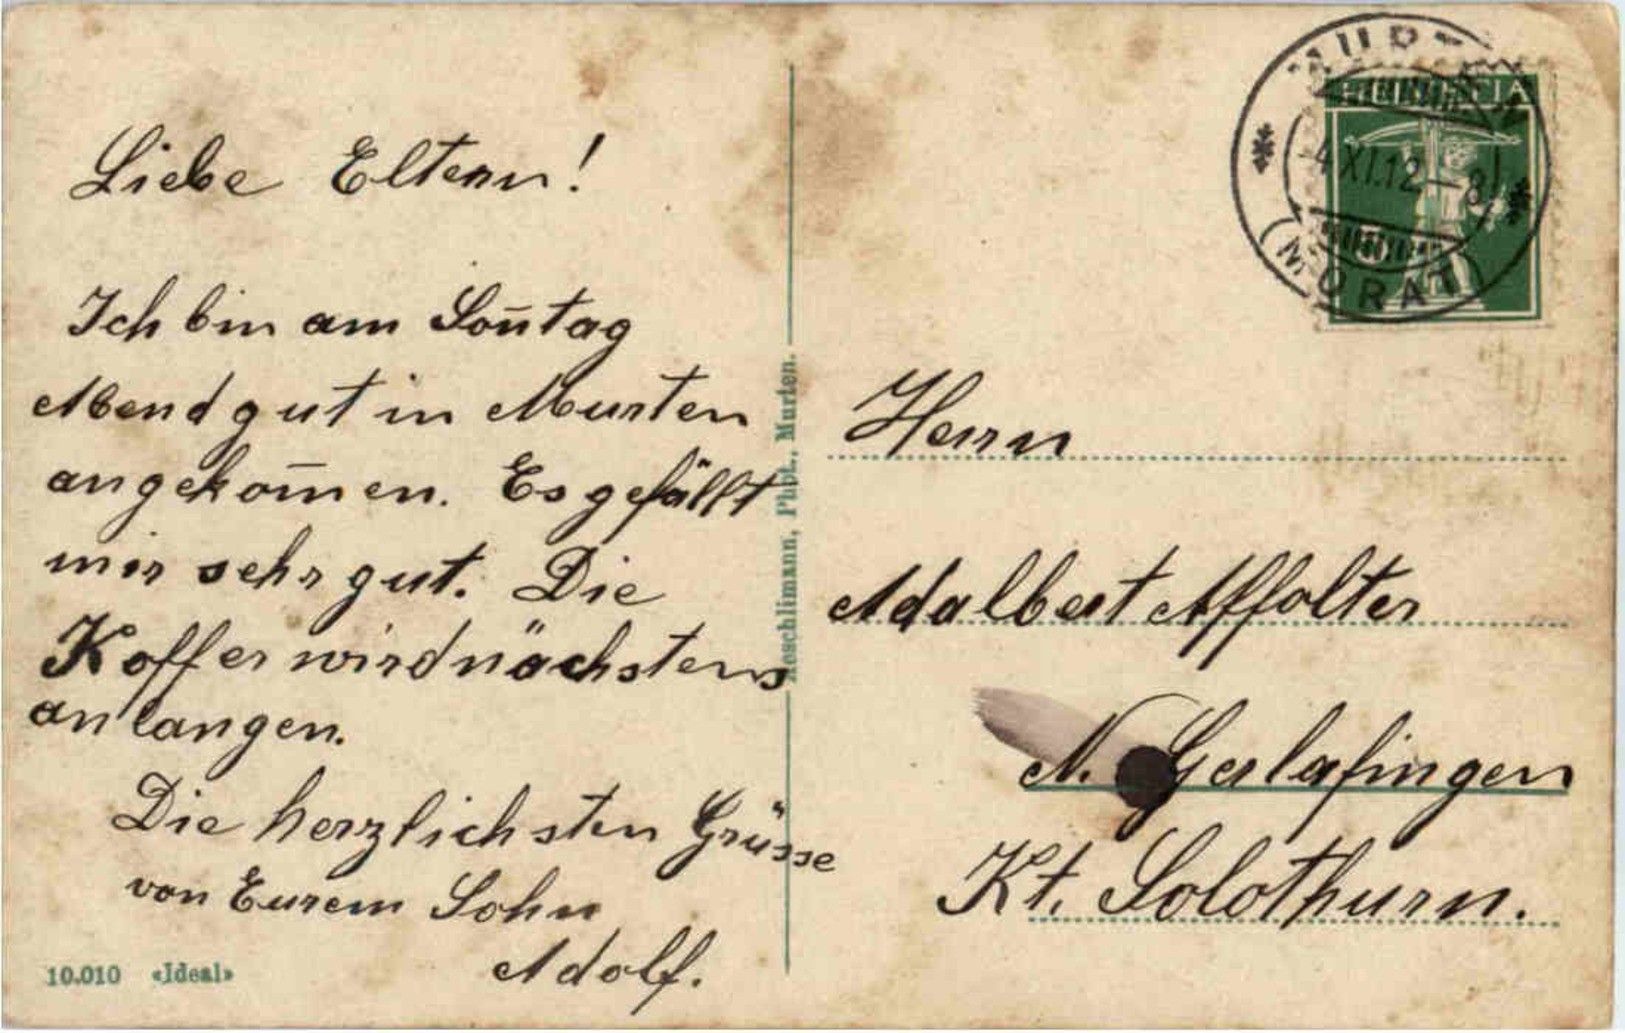 Liebe Eltern!
Ich bin am Son̄tag
Abend gut in Murten
angekom̄en. Es gefällt
mir sehr gut. Die
Koffer wird nächstens
anlangen.
Die herzlichsten Grüsse
von Eurem Sohn
Adolf.
10.010 «Ideal»
Aeschlimann, Phot., Murten.
MURTEN
HELVETIA
4.XI.12—8
(MORAT)
5
Herrn
Adalbert Affolter
N. Gerlafingen
Kt. Solothurn.